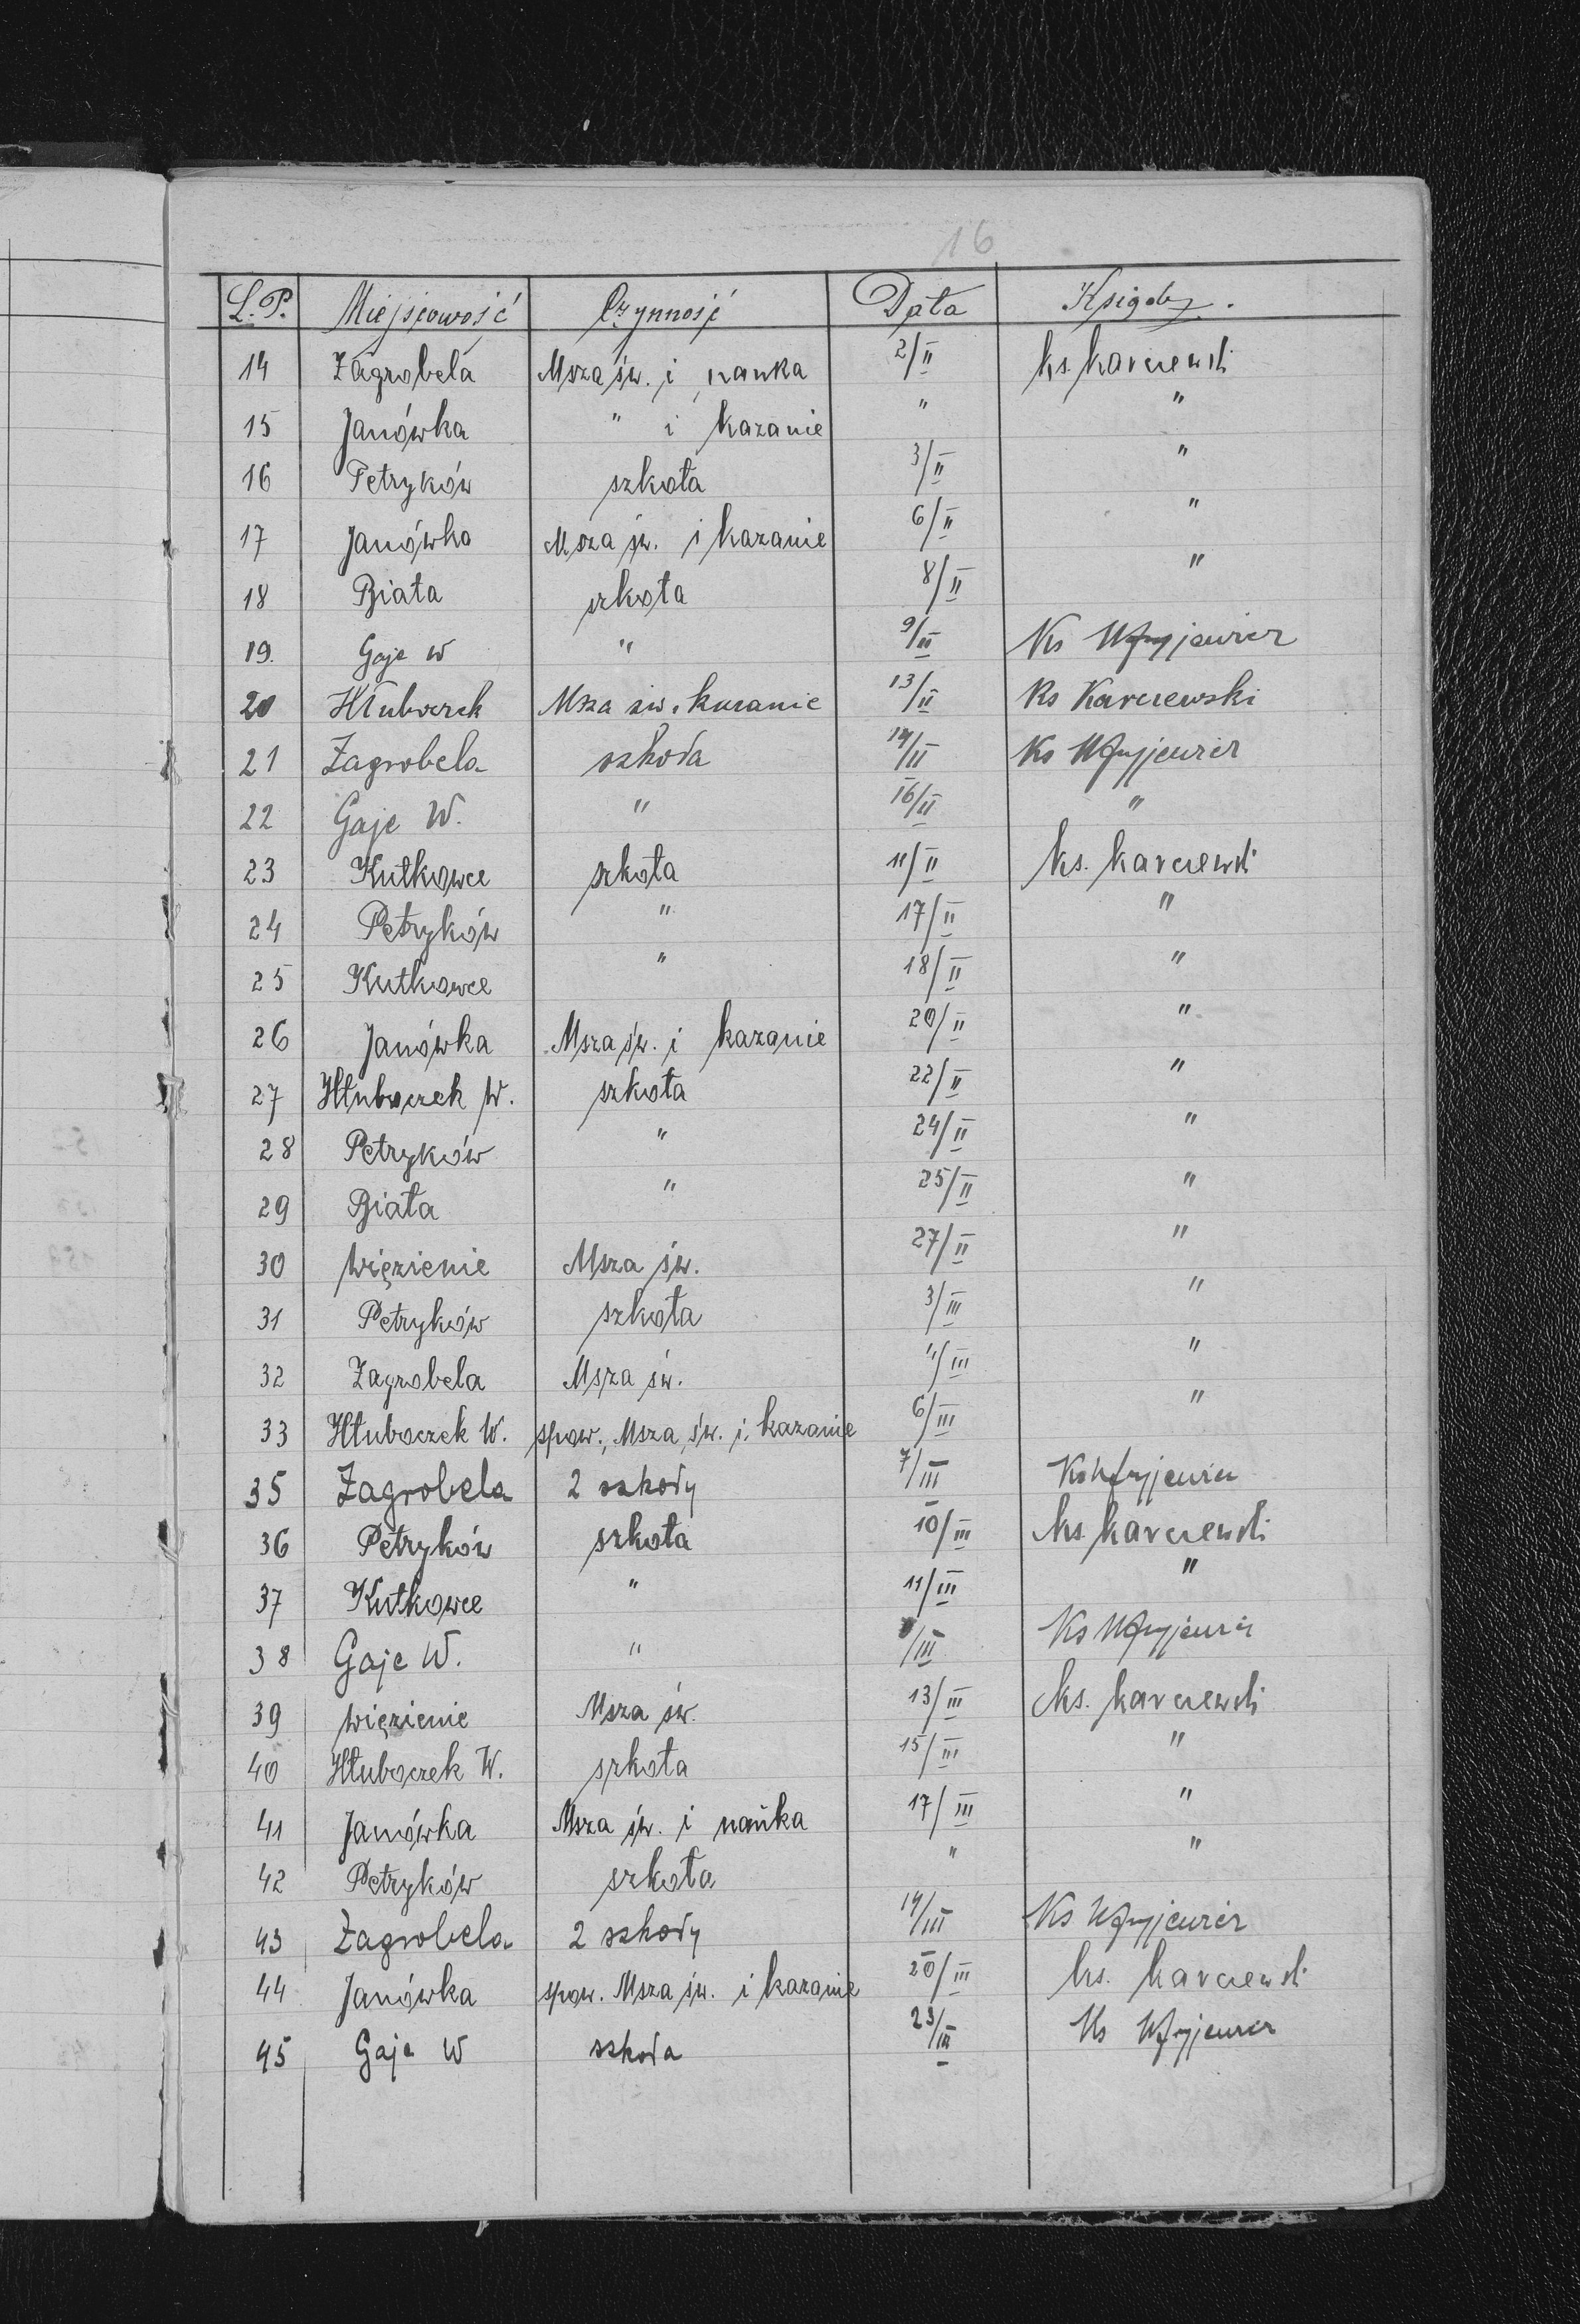 16
L.P. Miejscowość Czynność Data Księdz.
14 Zagrobela Msza św. i nauka 2/II ks. Karczewski
15 Janówka " i kazanie " "
16 Petryków szkoła 3/II "
17 Janówka Msza św. i kazanie 6/II "
18 Biała szkoła 8/II "
19. Gaje W " 9/II Ks
20 Hłuboczek Msza św. kazanie 13/II Ks Karczewski
21 Zagrobela szkoła 14/II Ks
22 Gaje W. " 16/II "
23 Kutkowce szkoła 11/II ks. Karczewski
24 Petryków " 17/II "
25 Kutkowce " 18/II "
26 Janówka Msza św. i kazanie 20/II "
27 Hłuboczek W. szkoła 22/II "
28 Petryków " 24/II "
29 Biała " 25/II "
30 Więzienie Msza św. 27/II "
31 Petryków szkoła 3/III "
32 Zagrobela Msza św. /III "
33 Hłuboczek W. spow., Msza św. i kazanie 6/III "
35 Zagrobela 2 szkoły 7/III Ks
36 Petryków szkoła 10/III ks. Karczewski
37 Kutkowce " 11/III "
38 Gaje W. " /III Ks
39 Więzienie Msza św. 13/III ks. Karczewski
40 Hłuboczek W. szkoła 15/III "
41 Janówka Msza św. i nauka 17/III "
42 Petryków szkoła " "
43 Zagrobela 2 szkoły 14/III Ks
44 Janówka spow. Msza św. i kazanie 20/III ks. Karczewski
45 Gaje W szkoła 23/III Ks